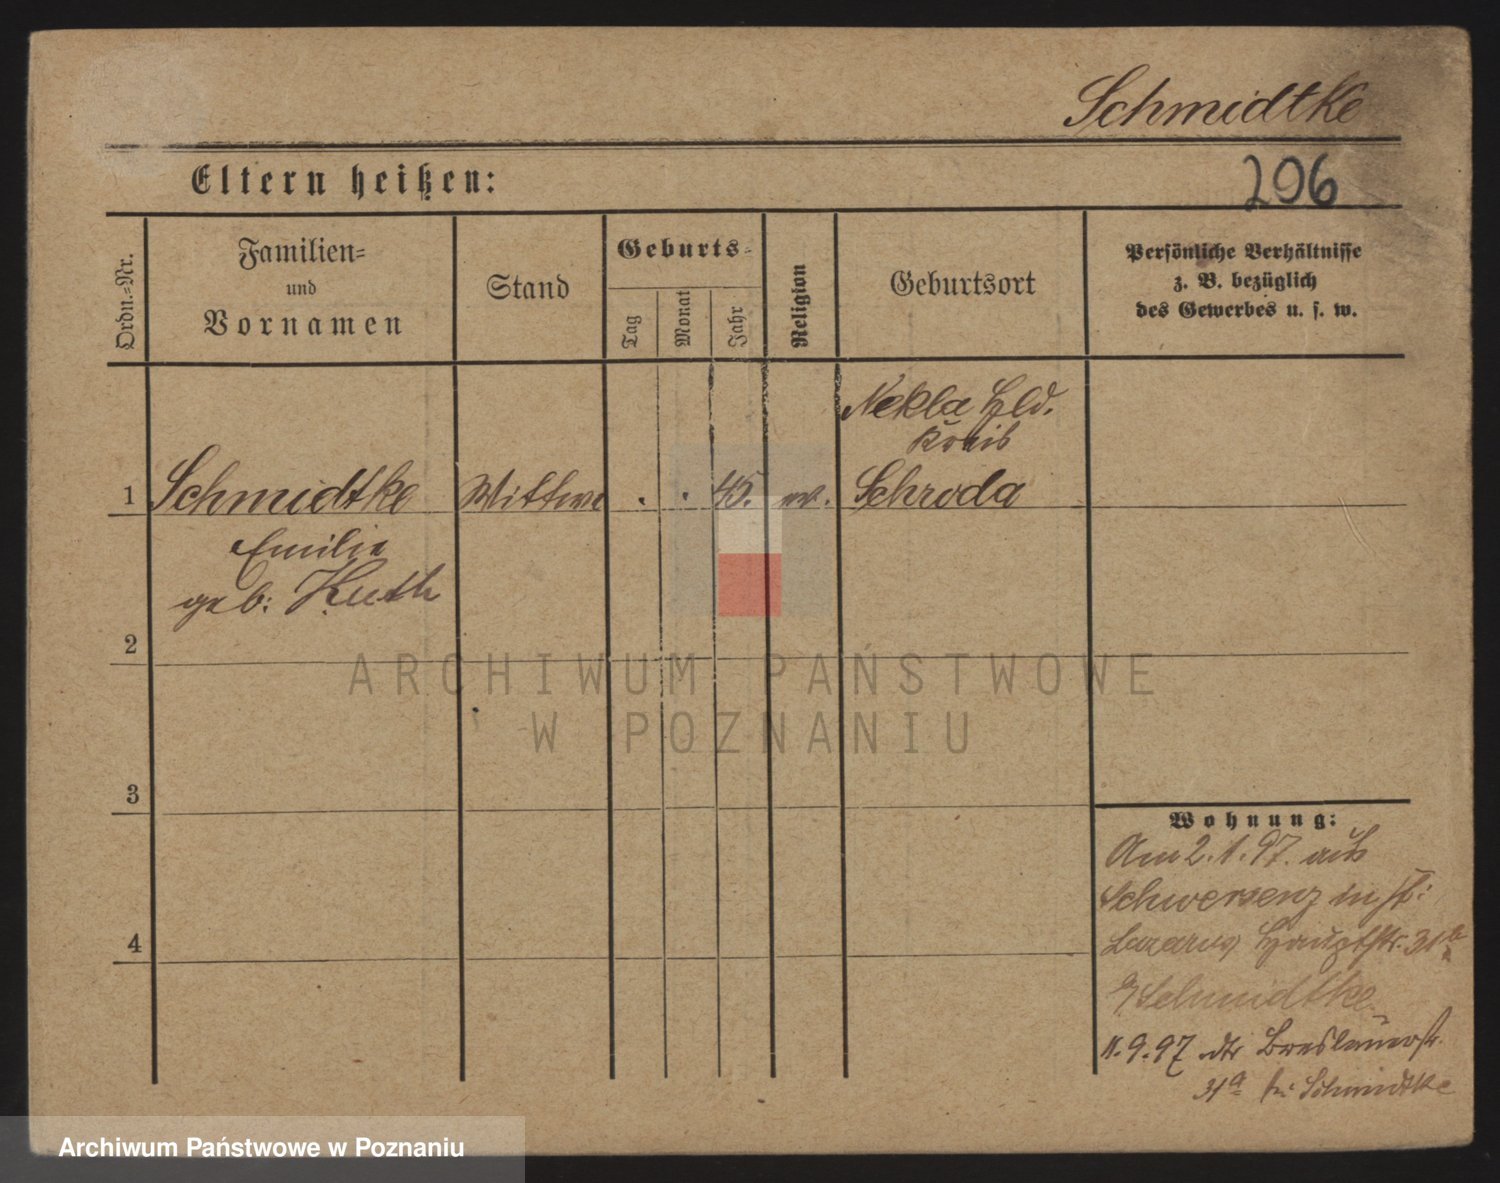 Schmidtke
Eltern heißen:
206
Ordn.-Nr.
Familien-
und
Vornamen
Stand
Geburts-
Tag
Monat
Jahr
Religion
Geburtsort
Persönliche Verhältnisse
z. B. bezüglich
des Gewerbes u. s. w.
Nekla Hld.
Kreis
1 Schmidtke Wittwe . . 45. ev. Schroda
Emilie
geb: Huth
2
3
4
Wohnung:
Am 2.1.97. aus
Schwersenz in St:
Lazarus Hauptstr. 31a
b/Schmidtke
11.9.97 Breslauerstr.
31a bei Schmidtke
ARCHIWUM PAŃSTWOWE
W POZNANIU
Archiwum Państwowe w Poznaniu